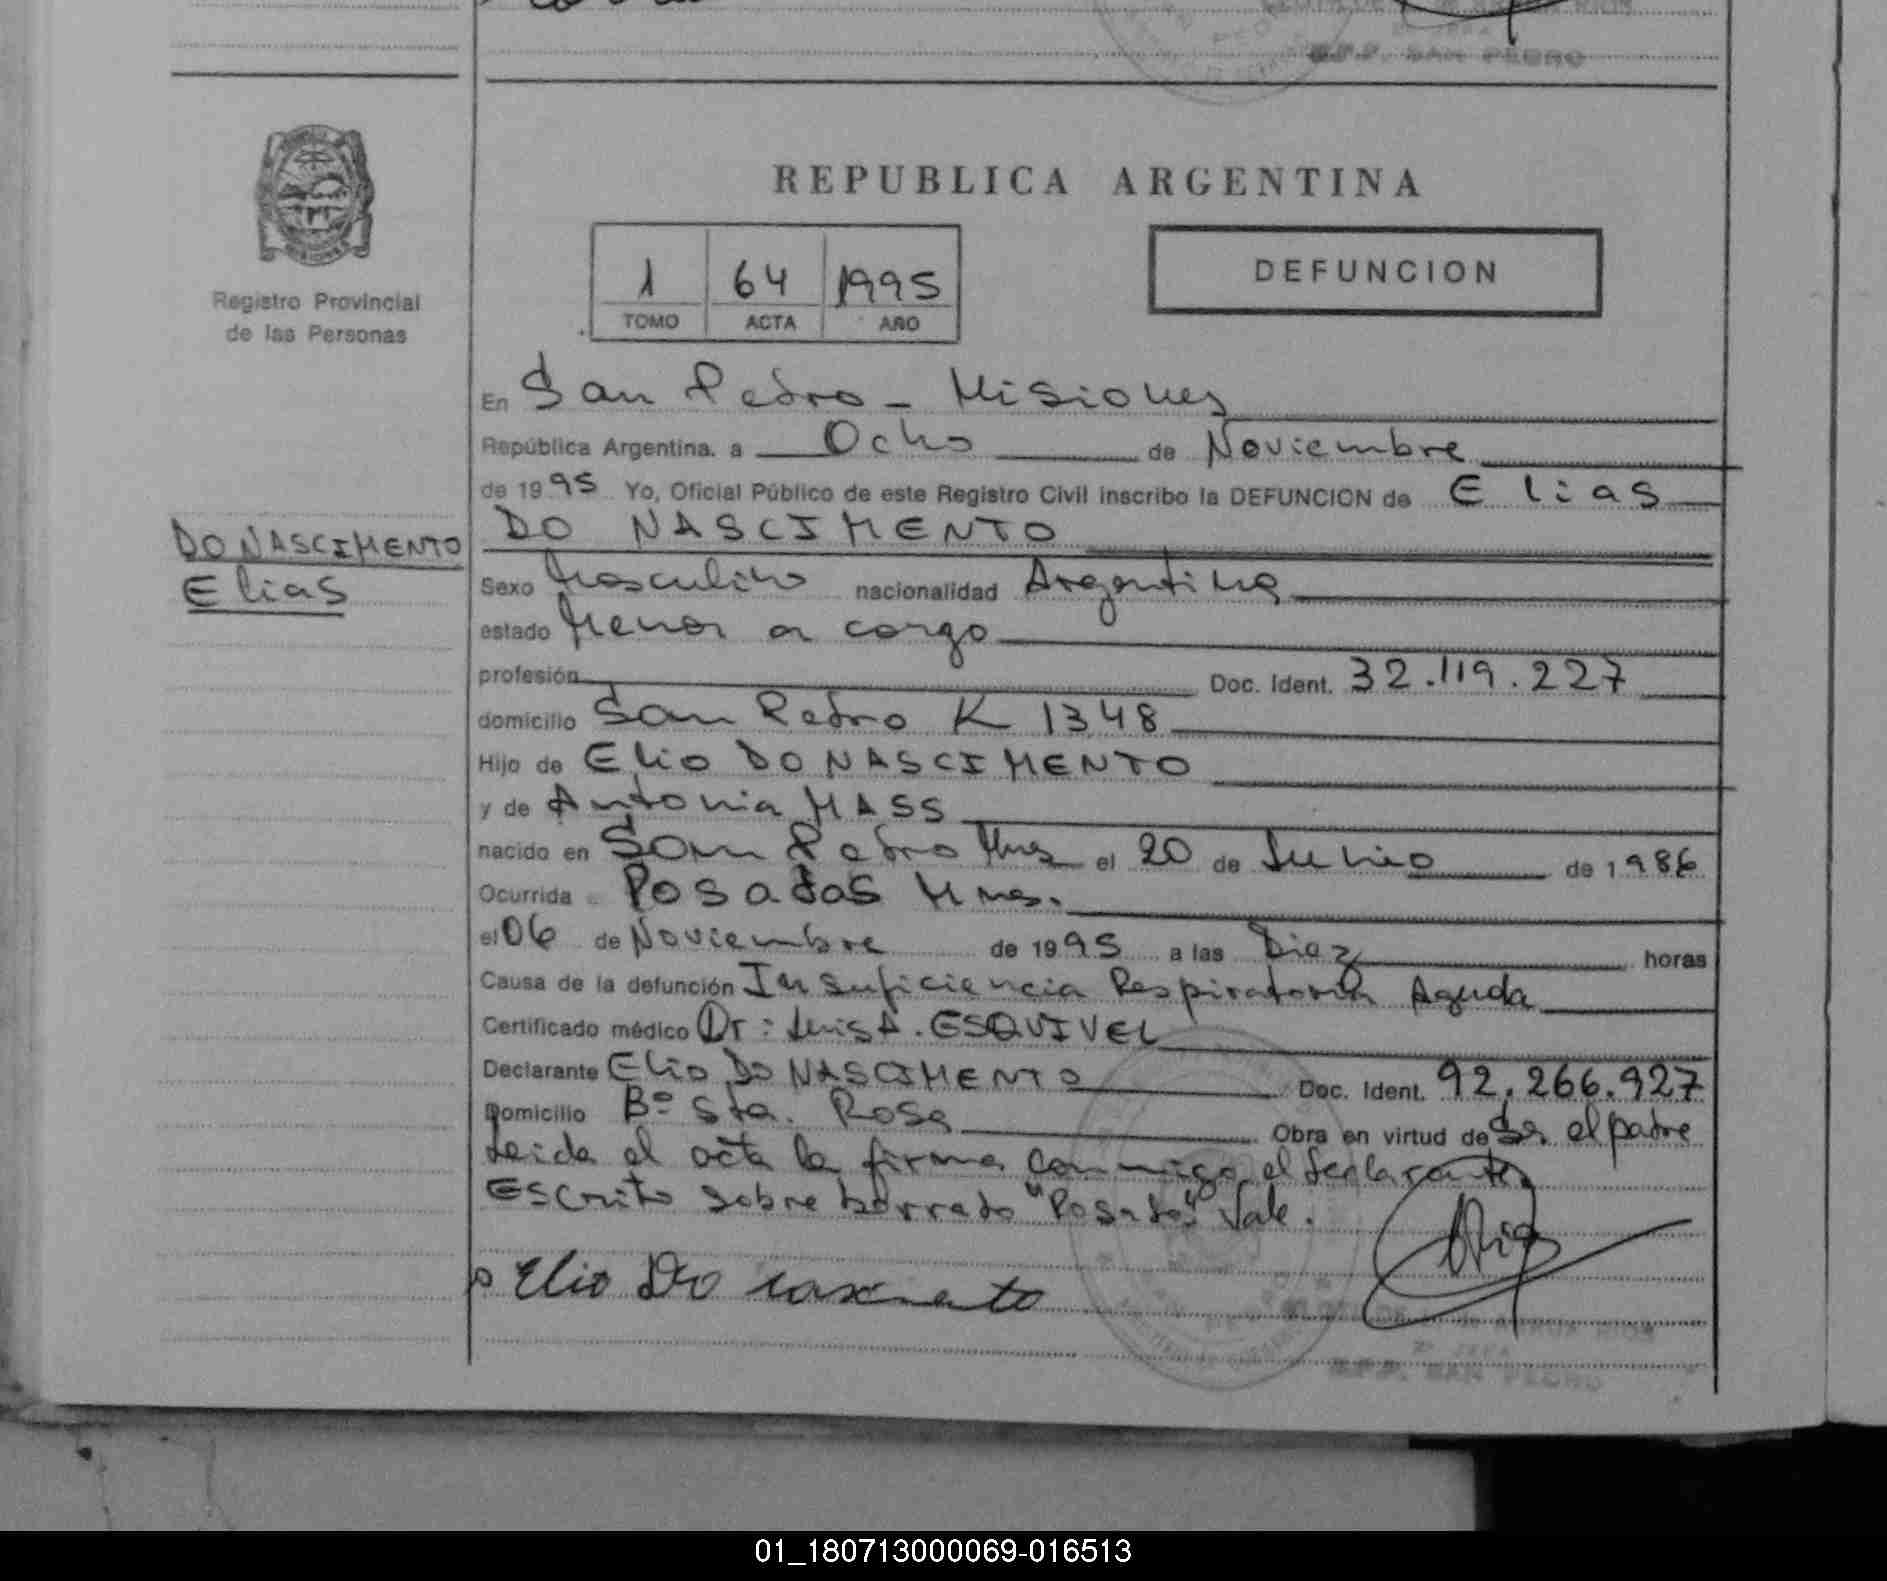 S.P.P. SAN PEDRO
REPUBLICA ARGENTINA
Registro Provincial
de las Personas
1 64 1995
TOMO ACTA AÑO
DEFUNCION
En San Pedro - Misiones
República Argentina, a Ocho de Noviembre
de 1995 Yo, Oficial Público de este Registro Civil inscribo la DEFUNCION de Elias
DO NASCIMENTO
DO NASCIMENTO
Elias
Sexo Masculino nacionalidad Argentina
estado Menor a cargo
profesión Doc. Ident. 32.119.227
domicilio San Pedro K 1348
Hijo de Elio DO NASCIMENTO
y de Antonia MASS
nacido en San Pedro Mnes el 20 de Junio de 1986
Ocurrida Posadas Mnes.
el 06 de Noviembre de 1995 a las Diez horas
Causa de la defunción Insuficiencia Respiratoria Aguda
Certificado médico Dr: Luis A. ESQUIVEL
Declarante Elio DO NASCIMENTO Doc. Ident. 92.266.927
Domicilio Bº Sta. Rosa Obra en virtud de Ser el padre
Leida el acta la firma conmigo el declarante.
Escrito sobre borrado "Posadas" Vale.
Elio Do
SAN PEDRO
01_180713000069-016513